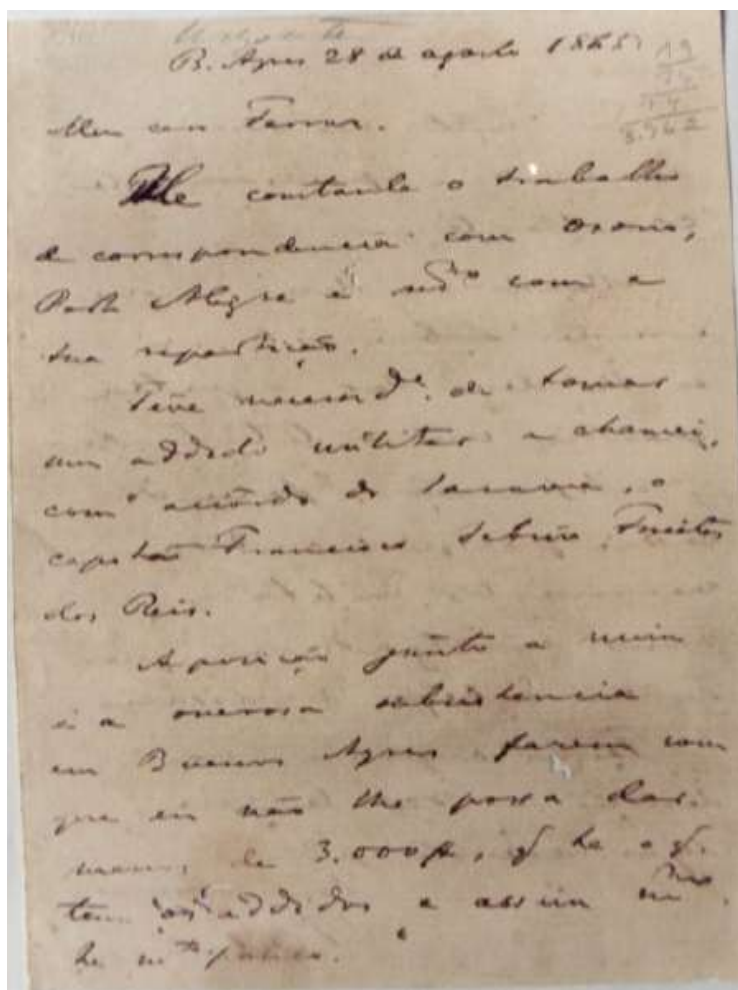 B. Ayres 28 de agosto 1865
Meu caro Ferraz.
He constante o trabalho
de correspondencia com Osorio,
Porto Alegre e mº com a
sua repartição.
Tive necessidᵉ. de tomar
um addido militar e chamei,
com acordo do Tamandaré, o
capitão Francisco Freitas
dos Reis.
A posição junto a mim
e a onerosa subsistencia
em Buenos Ayres fazem com
que eu não lhe possa dar
menos, de 3.000$, q̃ he o q̃.
tem os addidos e assim mᵐᵒ.
he mᵗᵒ pouco.
19
54